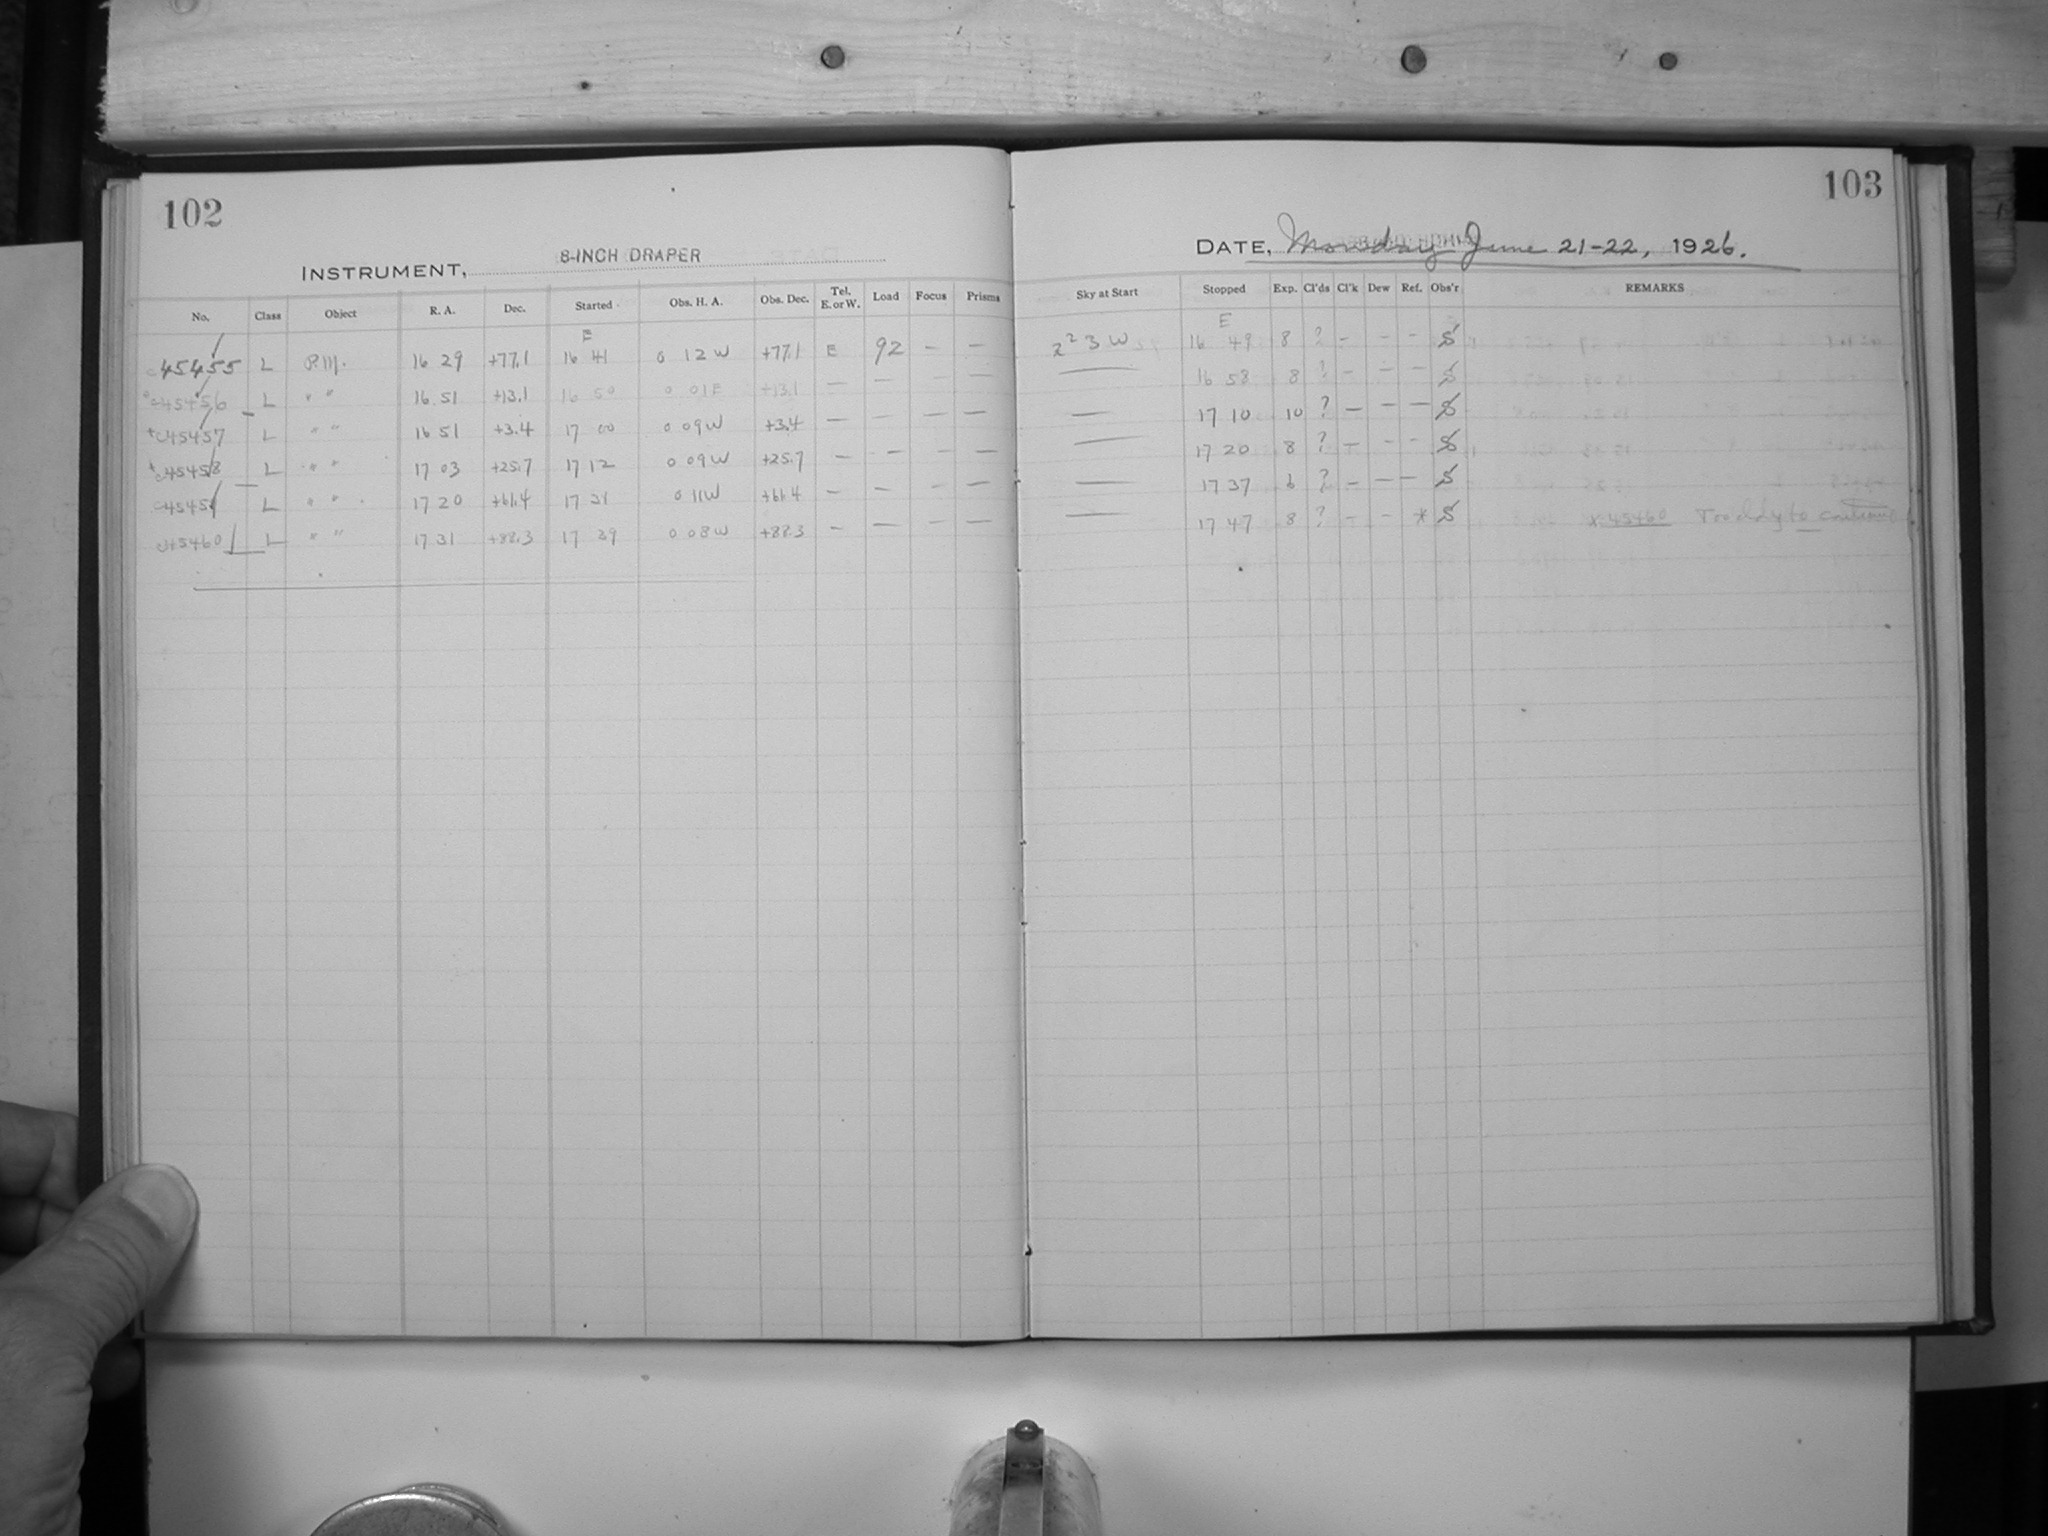 102
INSTRUMENT, 8-INCH DRAPER
No. Class Object R. A. Dec. Started Obs. H. A. Obs. Dec. Tel. E. or W. Load Focus Prisms
E
45455 L P.M. 16 29 +77.1 16 41 0 12 W +77.1 E 92 — —
45456 L " " 16 51 +13.1 16 50 0 01 E +13.1 — — — —
45457 L " " 16 51 +3.4 17 00 0 09 W +3.4 — — — —
45458 L " " 17 03 +25.7 17 12 0 09 W +25.7 — — — —
45459 L " " 17 20 +61.4 17 31 0 11 W +61.4 — — — —
45460 L " " 17 31 +88.3 17 39 0 08 W +88.3 — — — —
103
DATE, Monday June 21-22, 1926.
Sky at Start Stopped Exp. Cl'ds Cl'k Dew Ref. Obs'r REMARKS
E
2 2 3 W 16 49 8 ? — — — S
— 16 58 8 ? — — — S
— 17 10 10 ? — — — S
— 17 20 8 ? — — — S
— 17 37 6 ? — — — S
— 17 47 8 ? — — * S x 45460 Too cldy to continue